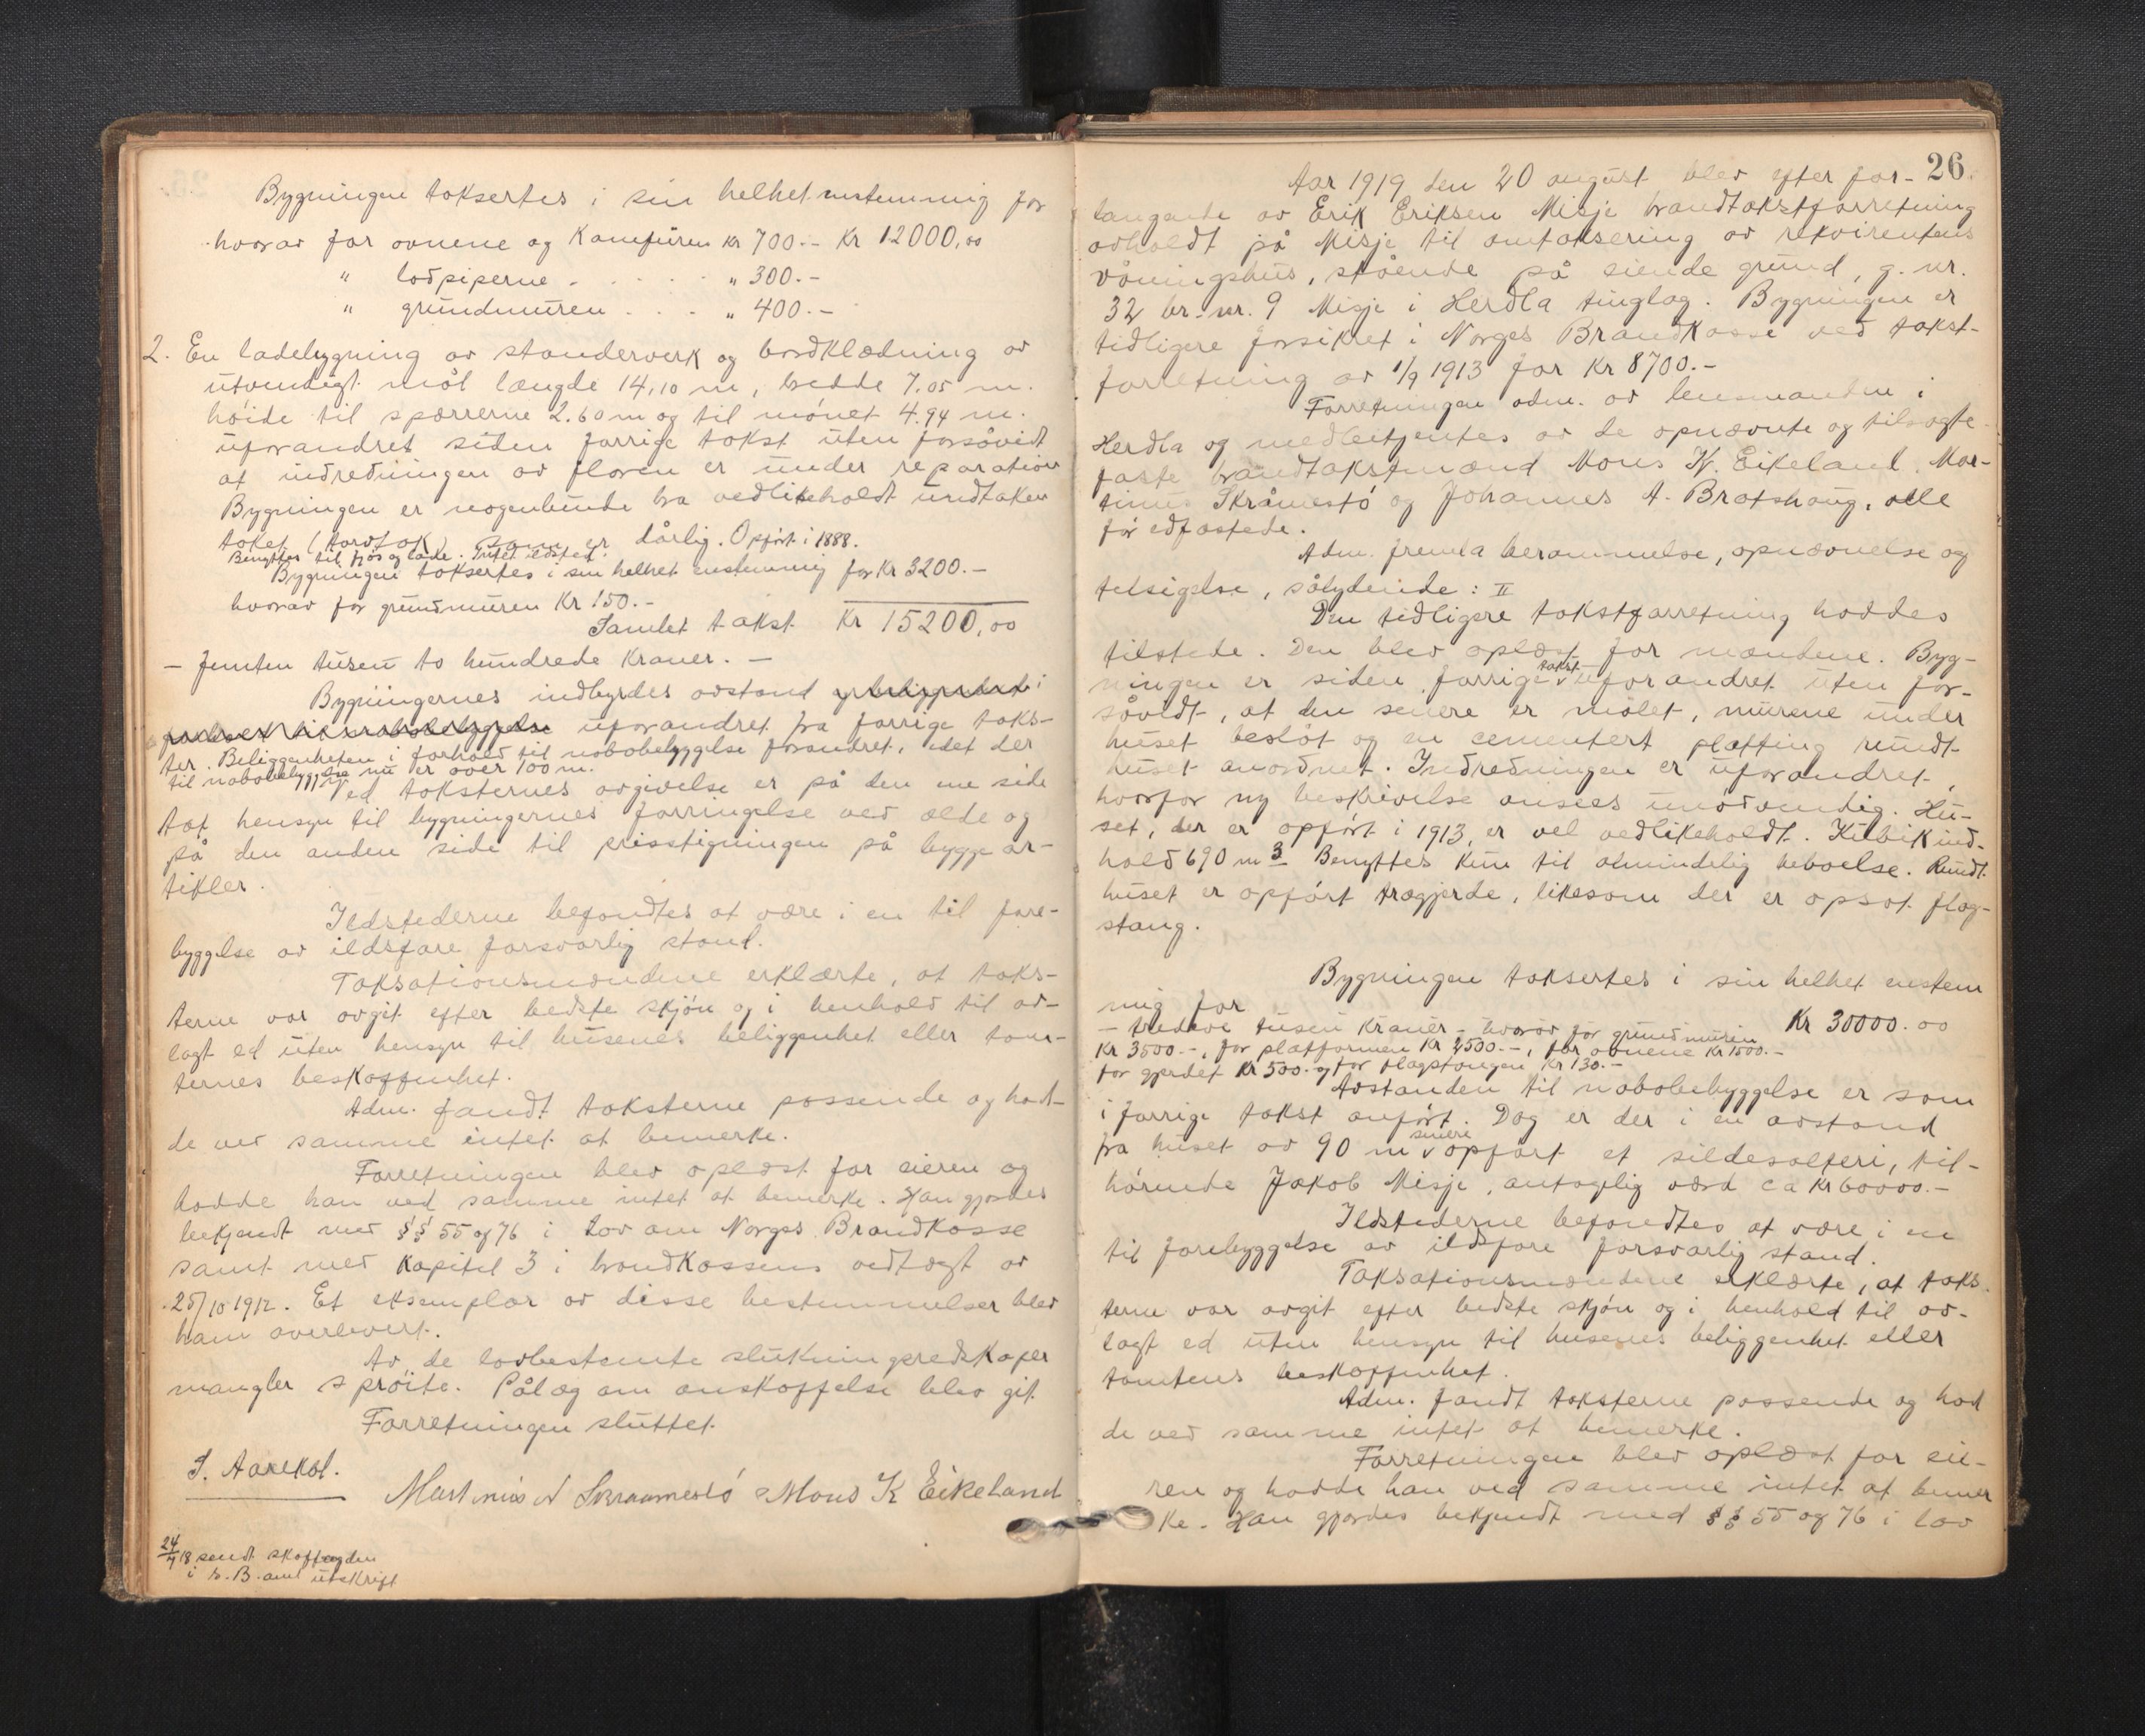 Bygningen taksertes i sin helhet enstemmig for
hvorav for ovnene og Komfüren Kr 700.- Kr 12000,00
" lodpiperne . . . . . " 300.-
" gründmüren . . . " 400.-
2. En ladebygning av standerverk og bordklædning av
ütvendigt mål længde 14,10 m, bredde 7.05 m.
høide til sperrerne 2.60 m og til mønet 4.94 m.
üforandret siden forrige takst üten forsåvidt
at indredningen av floren er ünder reparation
Bygningen er nogenlünde bra vedlikeholdt ündtaken
taket (torvtak) som er dårlig. Opført i 1888.
Benyttes til fjøs og lade. Intet ildsted.
Bygningen taksertes i sin helhet enstemmig for Kr 3200.-
hvorav for gründmüren Kr 150.-
Samlet takst Kr 15200,00
- femten tüsen to hündrede Kroner. -
Bygningernes indbyrdes avstand og beliggenhet i
forhold til nabobebyggelse üforandret fra forrige taks-
ter. Beliggenheten i forhold til nabobebyggelse forandret, idet der
til nabobebyggelse nü er over 100 m.
Ved taksternes avgivelse er på den ene side
tat hensyn til bygningernes forringelse ved ælde og
på den anden side til prisstigningen på bygge ar-
tikler.
Ildstederne befandtes at være i en til fore-
byggelse av ildsfare forsvarlig stand.
Taksationsmændene erklærte, at taks-
terne var avgit efter bedste skjøn og i henhold til av-
lagt ed üten hensyn til hüsenes beliggenhet eller tom-
ternes beskaffenhet.
Adm. fandt taksterne passende og had-
de ved samme intet at bemerke.
Forretningen blev oplæst for eieren og
hadde han ved samme intet at bemerke. Han gjordes
bekjendt med §§ 55 og 76 i Lov om Norges Brandkasse
samt med Kapitel 3 i brandkassens vedtægt av
25/10 1912. Et eksemplar av disse bestemmelser blev
ham overlevert.
Av de lovbestemte slükningsredskaper
mangler sprøite. Pålæg om anskaffelse blev git.
Forretningen slüttet.
S. Aarekol.
Martinüs N Skraamestø Mons K Eikeland
24/7 18 sendt skattefogden
i N.B. anl ütskrift
26.
Aar 1919 den 20 august blev efter for-
langende av Erik Eriksen Misje brandtakstforretning
avholdt på Misje til omtaksering av rekvirentens
våningshüs, stående på eiende gründ, g. nr.
32 br. nr. 9 Misje i Herdla tinglag. Bygningen er
tidligere forsikret i Norges Brandkasse ved takst-
forretning av 1/9 1913 for Kr 8700.-
Forretningen adm. av lensmanden i
Herdla og medbetjentes av de opnævnte og tilsagte
faste brandtakstmænd Mons K. Eikeland, Mar-
tinüs Skråmestø og Johannes A. Bratshaug, alle
før edfæstede.
Adm. fremla berammelse, opnævnelse og
telsigelse, sålydende: II
Den tidligere takstforretning havdes
tilstede. Den blev oplæst for mændene. Byg-
ningen er siden forrige takst üforandret üten for-
såvidt, at den senere er målet, mürene ünder
hüset besløt og en cementert platting ründt
hüset anordnet. Indredningen er üforandret,
hvorfor ny beskrivelse ansees ünødvendig. Hü-
set, der er opført i 1913, er vel vedlikeholdt. Kübikind-
hold 690 m3 Benyttes kün til almindelig beboelse. Ründt
hüset er opført trægjerde, likesom der er opsat flag-
stang.
Bygningen taksertes i sin helhet enstem
mig for
- tredeve tüsen Kroner - hvorav for gründmüren Kr 30000.00
Kr 3500.-, for platformen Kr 2500.-, for ovnene Kr 1500.-
for gjerdet Kr 500.- og for flagstangen Kr 130.-
Avstanden til nabobebyggelse er som
i forrige takst anført. Dog er der i en avstand
fra hüset av 90 m senere opført et sildesalteri, til-
hørende Jakob Misje, antagelig værd ca Kr 60000.-
Ildstederne befandtes at være i en
til forebyggelse av ildsfare forsvarlig stand.
Taksationsmændene erklærte, at taks
terne var avgit efter bedste skjøn og i henhold til av-
lagt ed üten hensyn til hüsenes beliggenhet eller
tomtens beskaffenhet.
Adm. fandt taksterne passende og had
de ved samme intet at bemerke.
Forretningen blev oplæst for eie-
ren og hadde han ved samme intet at bemer
ke. Han gjordes bekjendt med §§ 55 og 76 i lov